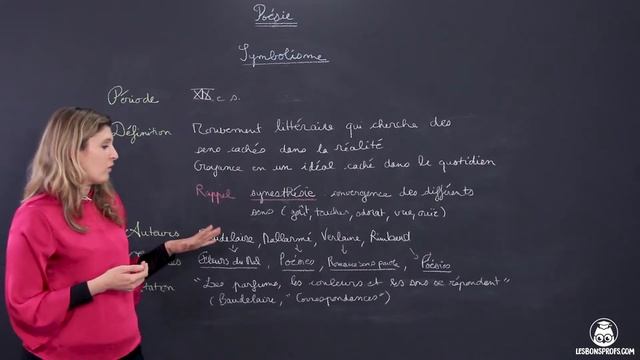 Poésie
Symbolisme
Période XIX e s.
Définition Mouvement littéraire qui cherche des
sens cachés dans la réalité
Croyance en un idéal caché dans le quotidien
Rappel synesthésie convergence des différents
sens (goût, toucher, odorat, vue, ouïe)
Auteurs Baudelaire, Mallarmé, Verlaine, Rimbaud
Fleurs du Mal Poésies Romances sans parole Poésies
"Les parfums, les couleurs et les sons se répondent"
(Baudelaire, "Correspondances")
LESBONSPROFS.COM